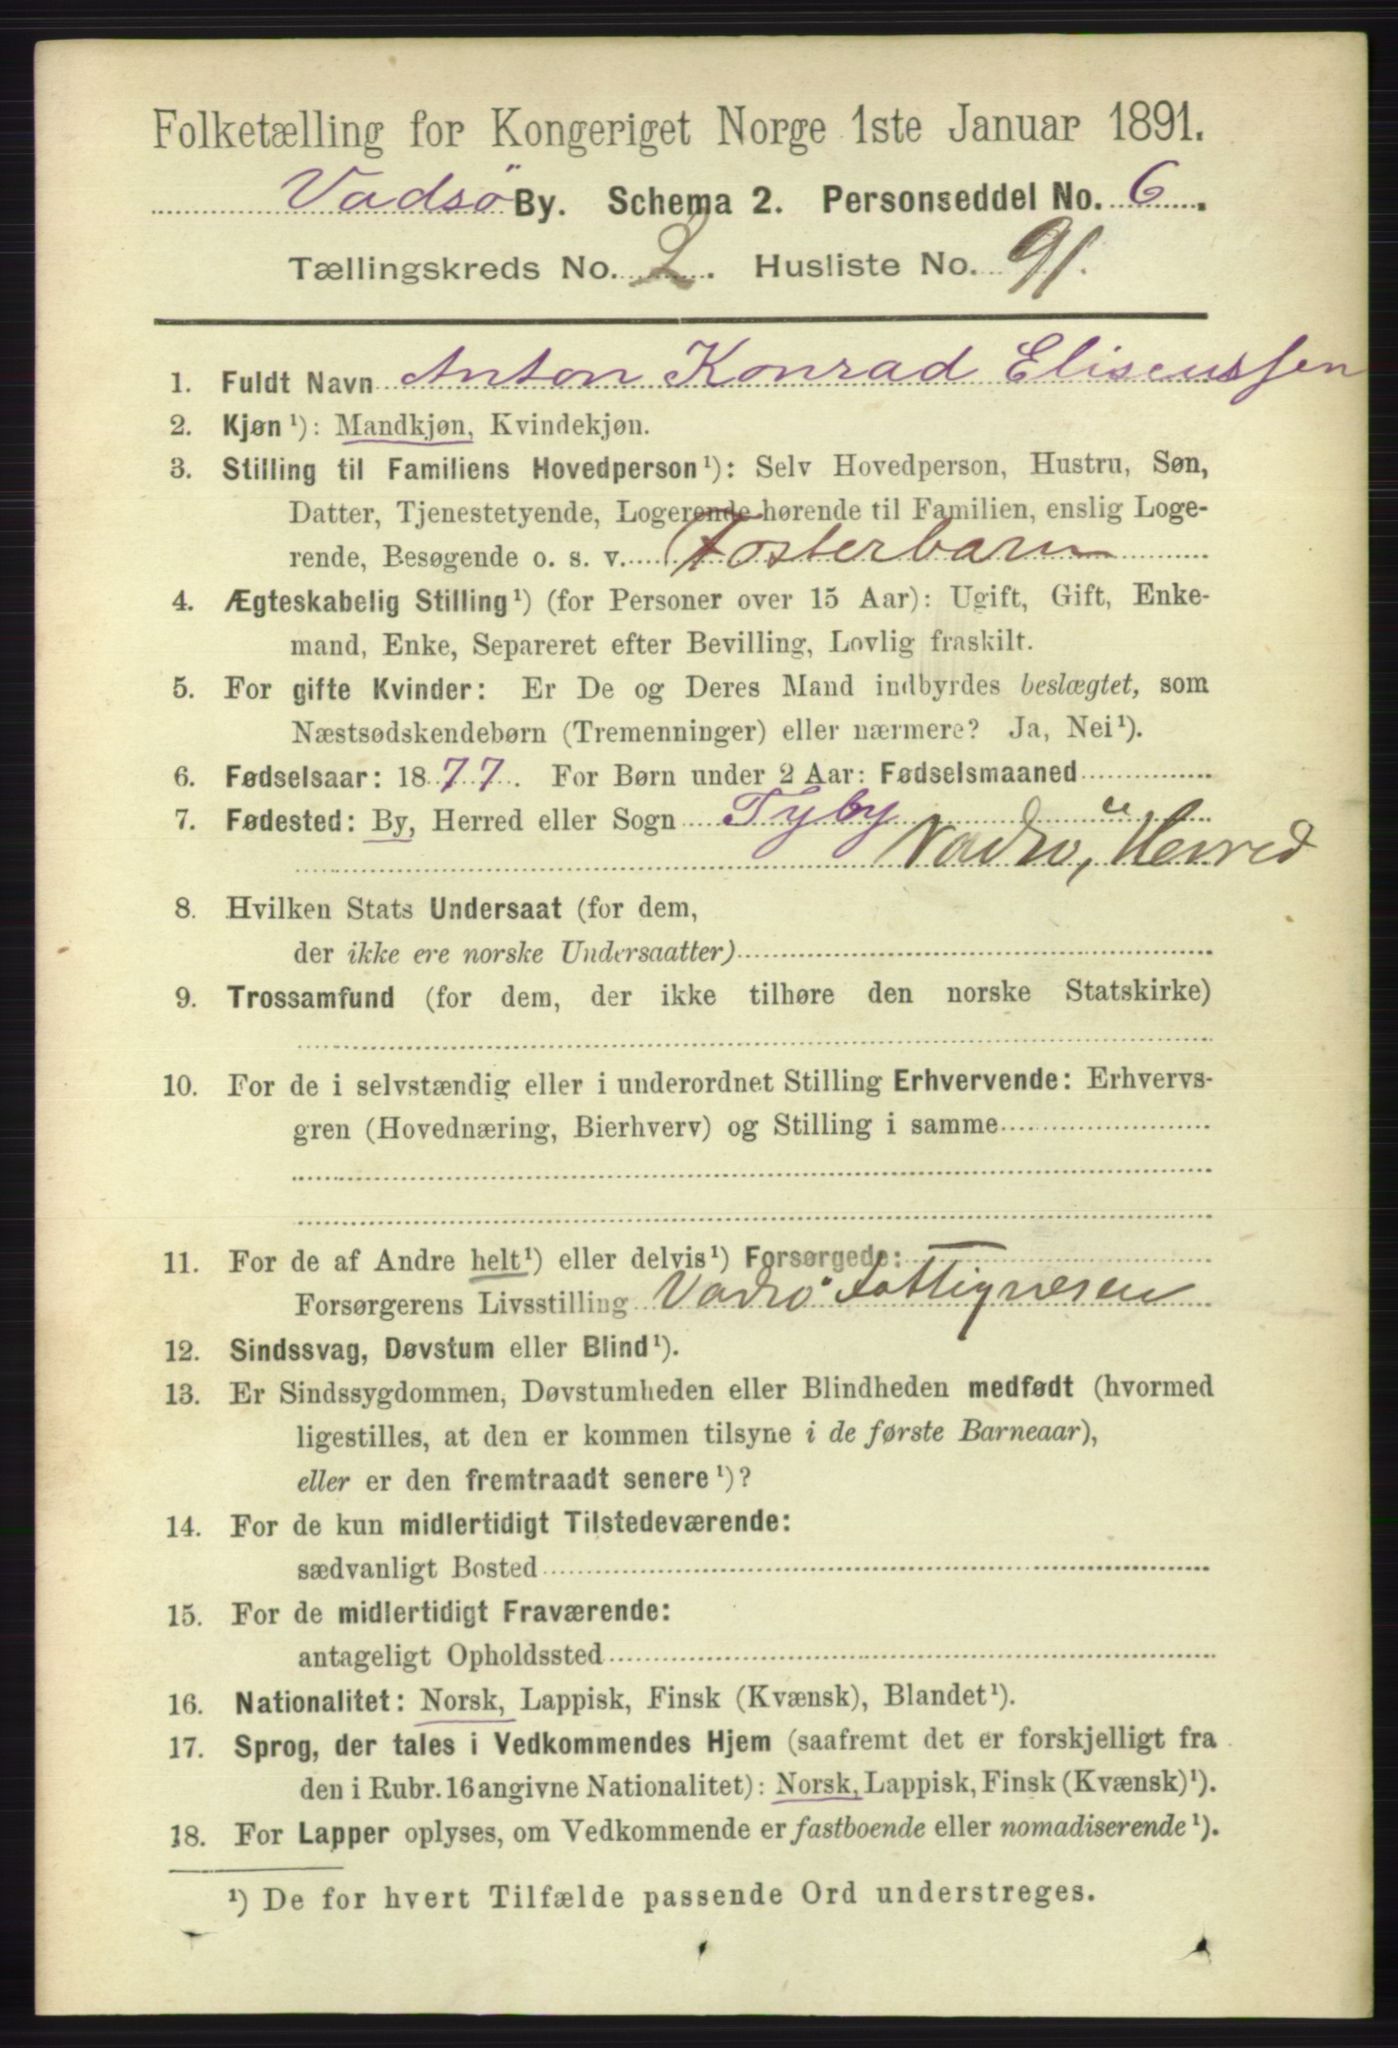 Folketælling for Kongeriget Norge 1ste Januar 1891.
Vadsö By. Schema 2. Personseddel No. 6.
Tællingskreds No. 2. Husliste No. 91.
1. Fuldt Navn Anton Konrad Eliseussen
2. Kjøn ¹): Mandkjøn, Kvindekjøn.
3. Stilling til Familiens Hovedperson ¹): Selv Hovedperson, Hustru, Søn,
Datter, Tjenestetyende, Logerende hørende til Familien, enslig Loge-
rende, Besøgende o. s. v. Fosterbarn
4. Ægteskabelig Stilling ¹) (for Personer over 15 Aar): Ugift, Gift, Enke-
mand, Enke, Separeret efter Bevilling, Lovlig fraskilt.
5. For gifte Kvinder: Er De og Deres Mand indbyrdes beslægtet, som
Næstsødskendebørn (Tremenninger) eller nærmere? Ja, Nei ¹).
6. Fødselsaar: 1877. For Børn under 2 Aar: Fødselsmaaned
7. Fødested: By, Herred eller Sogn Tyby
Vadsö, Herred
8. Hvilken Stats Undersaat (for dem,
der ikke ere norske Undersaatter)
9. Trossamfund (for dem, der ikke tilhøre den norske Statskirke)
10. For de i selvstændig eller i underordnet Stilling Erhvervende: Erhvervs-
gren (Hovednæring, Bierhverv) og Stilling i samme
11. For de af Andre helt ¹) eller delvis ¹) Forsørgede:
Forsørgerens Livsstilling Vadsö Fattigvesen
12. Sindssvag, Døvstum eller Blind ¹).
13. Er Sindssygdommen, Døvstumheden eller Blindheden medfødt (hvormed
ligestilles, at den er kommen tilsyne i de første Barneaar),
eller er den fremtraadt senere ¹)?
14. For de kun midlertidigt Tilstedeværende:
sædvanligt Bosted
15. For de midlertidigt Fraværende:
antageligt Opholdssted
16. Nationalitet: Norsk, Lappisk, Finsk (Kvænsk), Blandet ¹).
17. Sprog, der tales i Vedkommendes Hjem (saafremt det er forskjelligt fra
den i Rubr. 16 angivne Nationalitet): Norsk, Lappisk, Finsk (Kvænsk) ¹).
18. For Lapper oplyses, om Vedkommende er fastboende eller nomadiserende ¹).
¹) De for hvert Tilfælde passende Ord understreges.